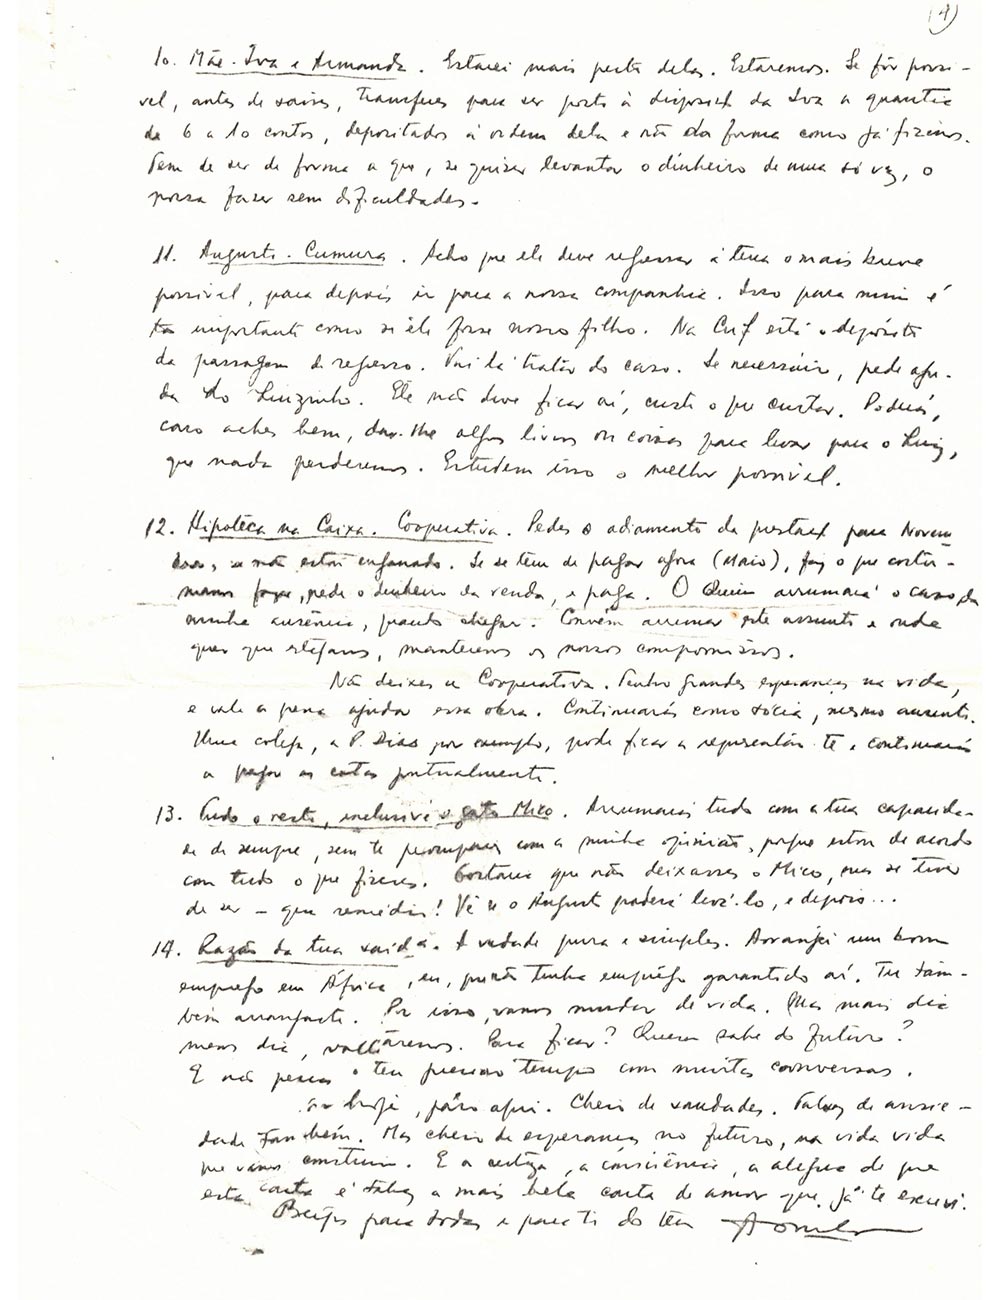 (4)
10. Mãe. Iva e Armanda. Estarei mais perto delas. Estaremos. Se fôr possi-
vel, antes de saires, transferes para ser posto à disposição da Iva a quantia
de 6 a 10 contos, depositados à ordem dela e não da forma como já fizemos.
Tem de ser de forma a que, se quiser levantar o dinheiro de uma só vez, o
possa fazer sem dificuldades.
11. Augusto. Cumura. Acho que ele deve regressar à terra o mais breve
possivel, para depois ir para a nossa companhia. Isso para mim é
tão importante como se êle fosse nosso filho. Na Cuf está o depósito
da passagem de regresso. Vai lá tratar do caso. Se necessário, pede aju-
da ao Luizinho. Ele não deve ficar aí, custe o que custar. Poderás,
caso aches bem, dar-lhe alguns livros ou coisas para levar para o Luiz,
que nada perderemos. Estudem isso o melhor possivel.
12. Hipotéca na Caixa. Cooperativa. Pedes o adiamento da prestação para Novem-
bro, se não estou enganado. Se se tem de pagar agora (Maio), faz o que costu-
mamos fazer, pede o dinheiro da renda, e paga. O arrumará o caso da
minha ausência, quando chegar. Convém arrumar este assunto e onde
quer que estejamos, manteremos os nossos compromissos.
Não deixes a Cooperativa. Tenho grandes esperanças na vida,
e vale a pena ajudar essa obra. Continuarás como sócia, mesmo ausente.
Uma colega, a P. Dias por exemplo, pode ficar a representar-te e continuarás
a pagar as cotas pontualmente.
13. Tudo o resto, inclusivé o gato Mico. Arrumarás tudo com a tua capacida-
de de sempre, sem te preocupares com a minha opinião, porque estou de acordo
com tudo o que fizeres. Gostaria que não deixasses o Mico, mas se tiver
de ser - que remédio! Vê se o Augusto poderá levá-lo, e depois...
14. Razão da tua saída. A verdade pura e simples. Arranjei um bom
emprêgo em África, eu, que não tinha emprêgo garantido aí. Tu tam-
bém arranjaste. Por isso, vamos mudar de vida. Mas mais dia
menos dia, voltaremos. Para ficar? Quem sabe do futuro?
E não percas o teu precioso tempo com muitas conversas.
hoje, páro aqui. Cheio de saudades. Talvez de ansie-
dade também. Mas cheio de esperanças no futuro, na vida vida
que vamos construir. E a certeza, a consciência, a alegria de que
esta carta é talvez a mais bela carta de amor que já te escrevi.
Beijos para todas e para ti do teu